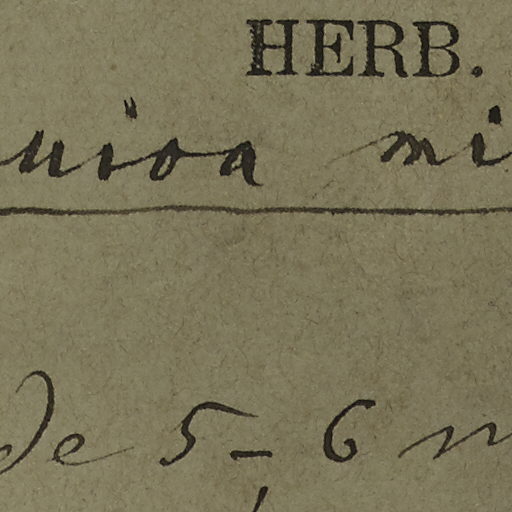 HERB.
nioa mi
de 5-6 m